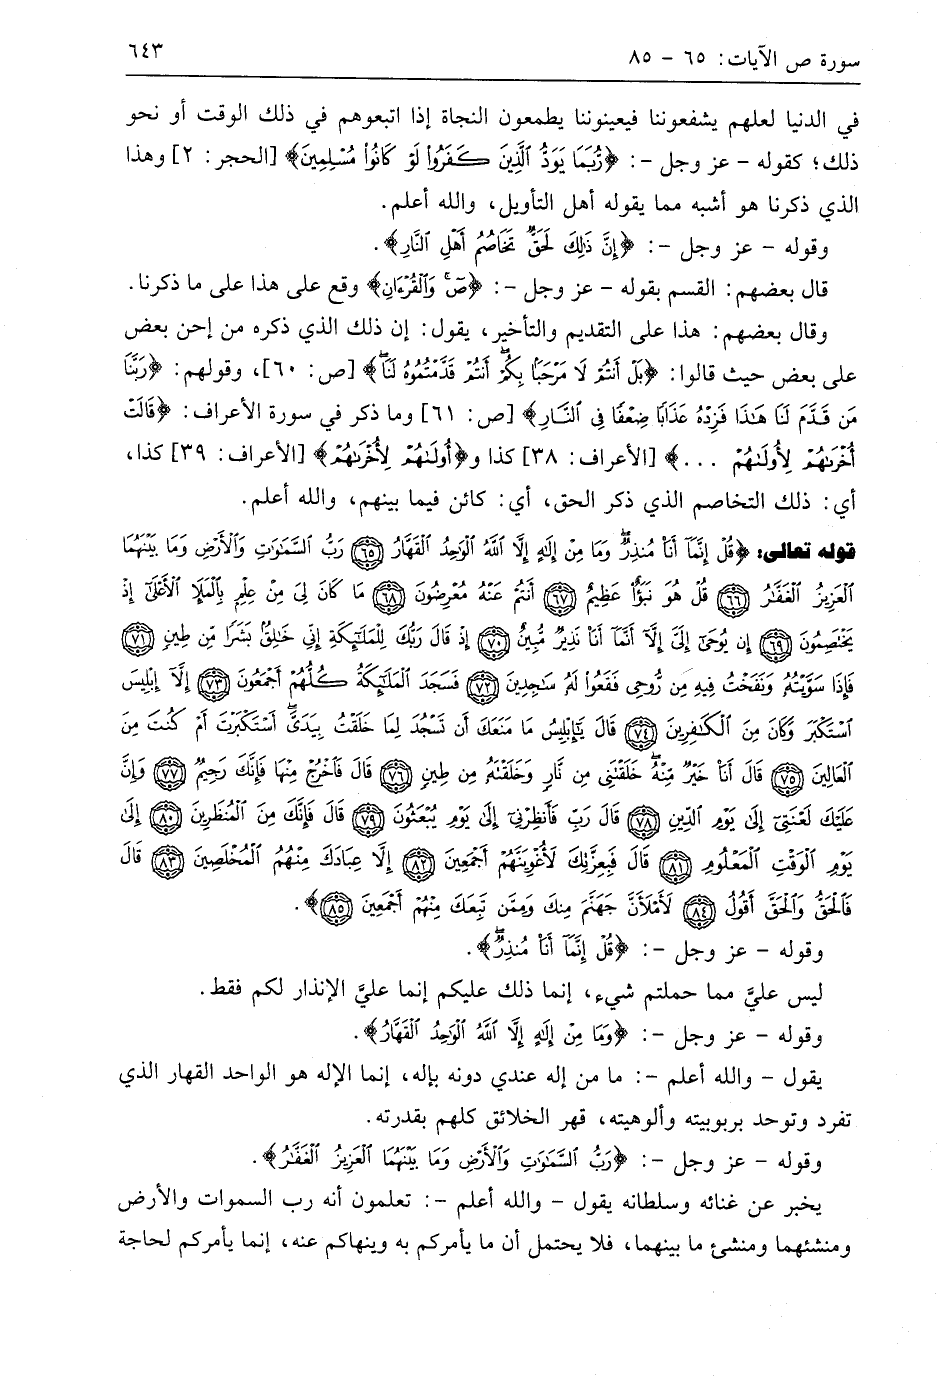 سورة ص الآيات: ٦٥ - ٨٥ ٦٤٣
في الدنيا لعلهم يشفعوننا فيعينوننا يطمعون النجاة إذا اتبعوهم في ذلك الوقت أو نحو
ذلك؛ كقوله - عز وجل -: ﴿رُّبَمَا يَوَدُّ الَّذِينَ كَفَرُوا لَوْ كَانُوا مُسْلِمِينَ﴾ [الحجر: ٢] وهذا
الذي ذكرنا هو أشبه مما يقوله أهل التأويل، والله أعلم.
وقوله - عز وجل -: ﴿إِنَّ ذَٰلِكَ لَحَقٌّ تَخَاصُمُ أَهْلِ النَّارِ﴾.
قال بعضهم: القسم بقوله - عز وجل -: ﴿صٓ وَالْقُرْءَانِ﴾ وقع على هذا على ما ذكرنا.
وقال بعضهم: هذا على التقديم والتأخير، يقول: إن ذلك الذي ذكره من إحن بعض
على بعض حيث قالوا: ﴿بَلْ أَنتُمْ لَا مَرْحَبًا بِكُمْ أَنتُمْ قَدَّمْتُمُوهُ لَنَا﴾ [ص: ٦٠]، وقولهم: ﴿رَبَّنَا
مَن قَدَّمَ لَنَا هَٰذَا فَزِدْهُ عَذَابًا ضِعْفًا فِي النَّارِ﴾ [ص: ٦١] وما ذكر في سورة الأعراف: ﴿قَالَتْ
أُخْرَىٰهُمْ لِأُولَىٰهُمْ ...﴾ [الأعراف: ٣٨] كذا و﴿أُولَىٰهُمْ لِأُخْرَىٰهُمْ﴾ [الأعراف: ٣٩] كذا،
أي: ذلك التخاصم الذي ذكر الحق، أي: كائن فيما بينهم، والله أعلم.
قوله تعالى: ﴿قُلْ إِنَّمَا أَنَا مُنذِرٌ وَمَا مِنْ إِلَٰهٍ إِلَّا اللَّهُ الْوَاحِدُ الْقَهَّارُ (٦٥) رَبُّ السَّمَٰوَٰتِ وَالْأَرْضِ وَمَا بَيْنَهُمَا
الْعَزِيزُ الْغَفَّٰرُ (٦٦) قُلْ هُوَ نَبَؤٌا عَظِيمٌ (٦٧) أَنتُمْ عَنْهُ مُعْرِضُونَ (٦٨) مَا كَانَ لِيَ مِنْ عِلْمٍ بِالْمَلَإِ الْأَعْلَىٰ إِذْ
يَخْتَصِمُونَ (٦٩) إِن يُوحَىٰ إِلَيَّ إِلَّا أَنَّمَا أَنَا نَذِيرٌ مُّبِينٌ (٧٠) إِذْ قَالَ رَبُّكَ لِلْمَلَٰٓئِكَةِ إِنِّي خَٰلِقٌ بَشَرًا مِّن طِينٍ (٧١)
فَإِذَا سَوَّيْتُهُ وَنَفَخْتُ فِيهِ مِن رُّوحِي فَقَعُوا لَهُ سَٰجِدِينَ (٧٢) فَسَجَدَ الْمَلَٰٓئِكَةُ كُلُّهُمْ أَجْمَعُونَ (٧٣) إِلَّا إِبْلِيسَ
اسْتَكْبَرَ وَكَانَ مِنَ الْكَٰفِرِينَ (٧٤) قَالَ يَٰٓإِبْلِيسُ مَا مَنَعَكَ أَن تَسْجُدَ لِمَا خَلَقْتُ بِيَدَيَّ أَسْتَكْبَرْتَ أَمْ كُنتَ مِنَ
الْعَالِينَ (٧٥) قَالَ أَنَا خَيْرٌ مِّنْهُ خَلَقْتَنِي مِن نَّارٍ وَخَلَقْتَهُ مِن طِينٍ (٧٦) قَالَ فَاخْرُجْ مِنْهَا فَإِنَّكَ رَجِيمٌ (٧٧) وَإِنَّ
عَلَيْكَ لَعْنَتِي إِلَىٰ يَوْمِ الدِّينِ (٧٨) قَالَ رَبِّ فَأَنظِرْنِي إِلَىٰ يَوْمِ يُبْعَثُونَ (٧٩) قَالَ فَإِنَّكَ مِنَ الْمُنظَرِينَ (٨٠) إِلَىٰ
يَوْمِ الْوَقْتِ الْمَعْلُومِ (٨١) قَالَ فَبِعِزَّتِكَ لَأُغْوِيَنَّهُمْ أَجْمَعِينَ (٨٢) إِلَّا عِبَادَكَ مِنْهُمُ الْمُخْلَصِينَ (٨٣) قَالَ
فَالْحَقُّ وَالْحَقَّ أَقُولُ (٨٤) لَأَمْلَأَنَّ جَهَنَّمَ مِنكَ وَمِمَّن تَبِعَكَ مِنْهُمْ أَجْمَعِينَ (٨٥)﴾.
وقوله - عز وجل -: ﴿قُلْ إِنَّمَا أَنَا مُنذِرٌ﴾.
ليس عليَّ مما حملتم شيء، إنما ذلك عليكم إنما عليَّ الإنذار لكم فقط.
وقوله - عز وجل -: ﴿وَمَا مِنْ إِلَٰهٍ إِلَّا اللَّهُ الْوَاحِدُ الْقَهَّارُ﴾.
يقول - والله أعلم -: ما من إله عندي دونه بإله، إنما الإله هو الواحد القهار الذي
تفرد وتوحد بربوبيته وألوهيته، قهر الخلائق كلهم بقدرته.
وقوله - عز وجل -: ﴿رَبُّ السَّمَٰوَٰتِ وَالْأَرْضِ وَمَا بَيْنَهُمَا الْعَزِيزُ الْغَفَّٰرُ﴾.
يخبر عن غنائه وسلطانه يقول - والله أعلم -: تعلمون أنه رب السموات والأرض
ومنشئهما ومنشئ ما بينهما، فلا يحتمل أن ما يأمركم به وينهاكم عنه، إنما يأمركم لحاجة